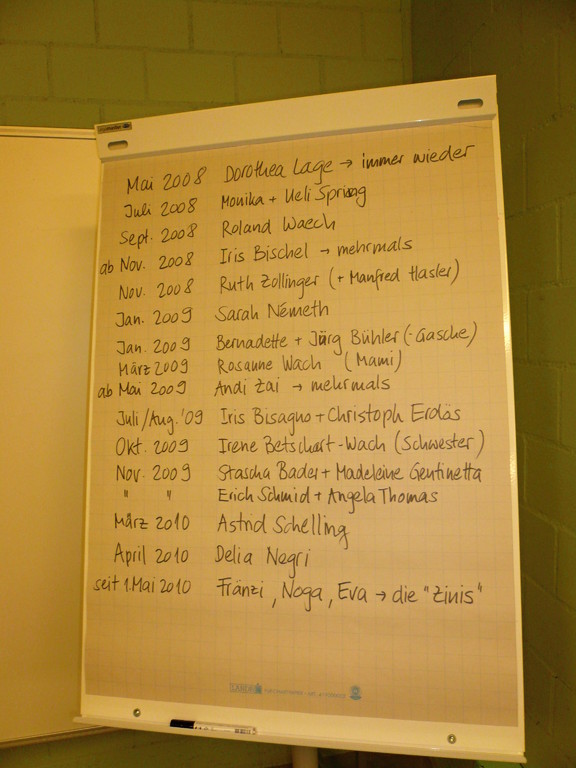 Mai 2008 Dorothea Lage → immer wieder
Juli 2008 Monika + Ueli Spring
Sept. 2008 Roland Waech
ab Nov. 2008 Iris Bischel → mehrmals
Nov. 2008 Ruth Zollinger (+ Manfred Hasler)
Jan. 2009 Sarah Németh
Jan. 2009 Bernadette + Jürg Bühler (-Gasche)
März 2009 Rosanne Wach (Mami)
ab Mai 2009 Andi Zai → mehrmals
Juli/Aug. '09 Iris Bisagno + Christoph Erdös
Okt. 2009 Irene Betschart-Wach (Schwester)
Nov. 2009 Stascha Bader + Madeleine Gentinetta
" " Erich Schmid + Angela Thomas
März 2010 Astrid Schelling
April 2010 Delia Negri
seit 1. Mai 2010 Fränzi, Noga, Eva → die "Zinis"